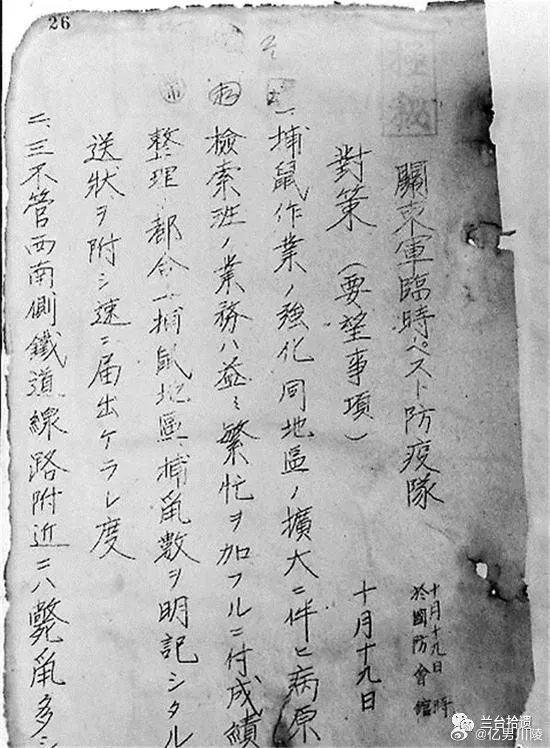 26
極秘
關東軍臨時ペスト防疫隊
十月十九日 時
於國防會館
對策(要望事項)
十月十九日
一、捕鼠作業ノ強化同地區ノ擴大ニ伴ヒ病原
檢索班ノ業務ハ益〻繁忙ヲ加フルニ付成績
整理ノ都合上捕鼠地區捕鼠數ヲ明記シタル
送狀ヲ附シ速ニ届出ケラレ度
二、三不管西南側鐵道線路附近ニハ斃鼠多シ
兰台拾遗
@亿男川陵